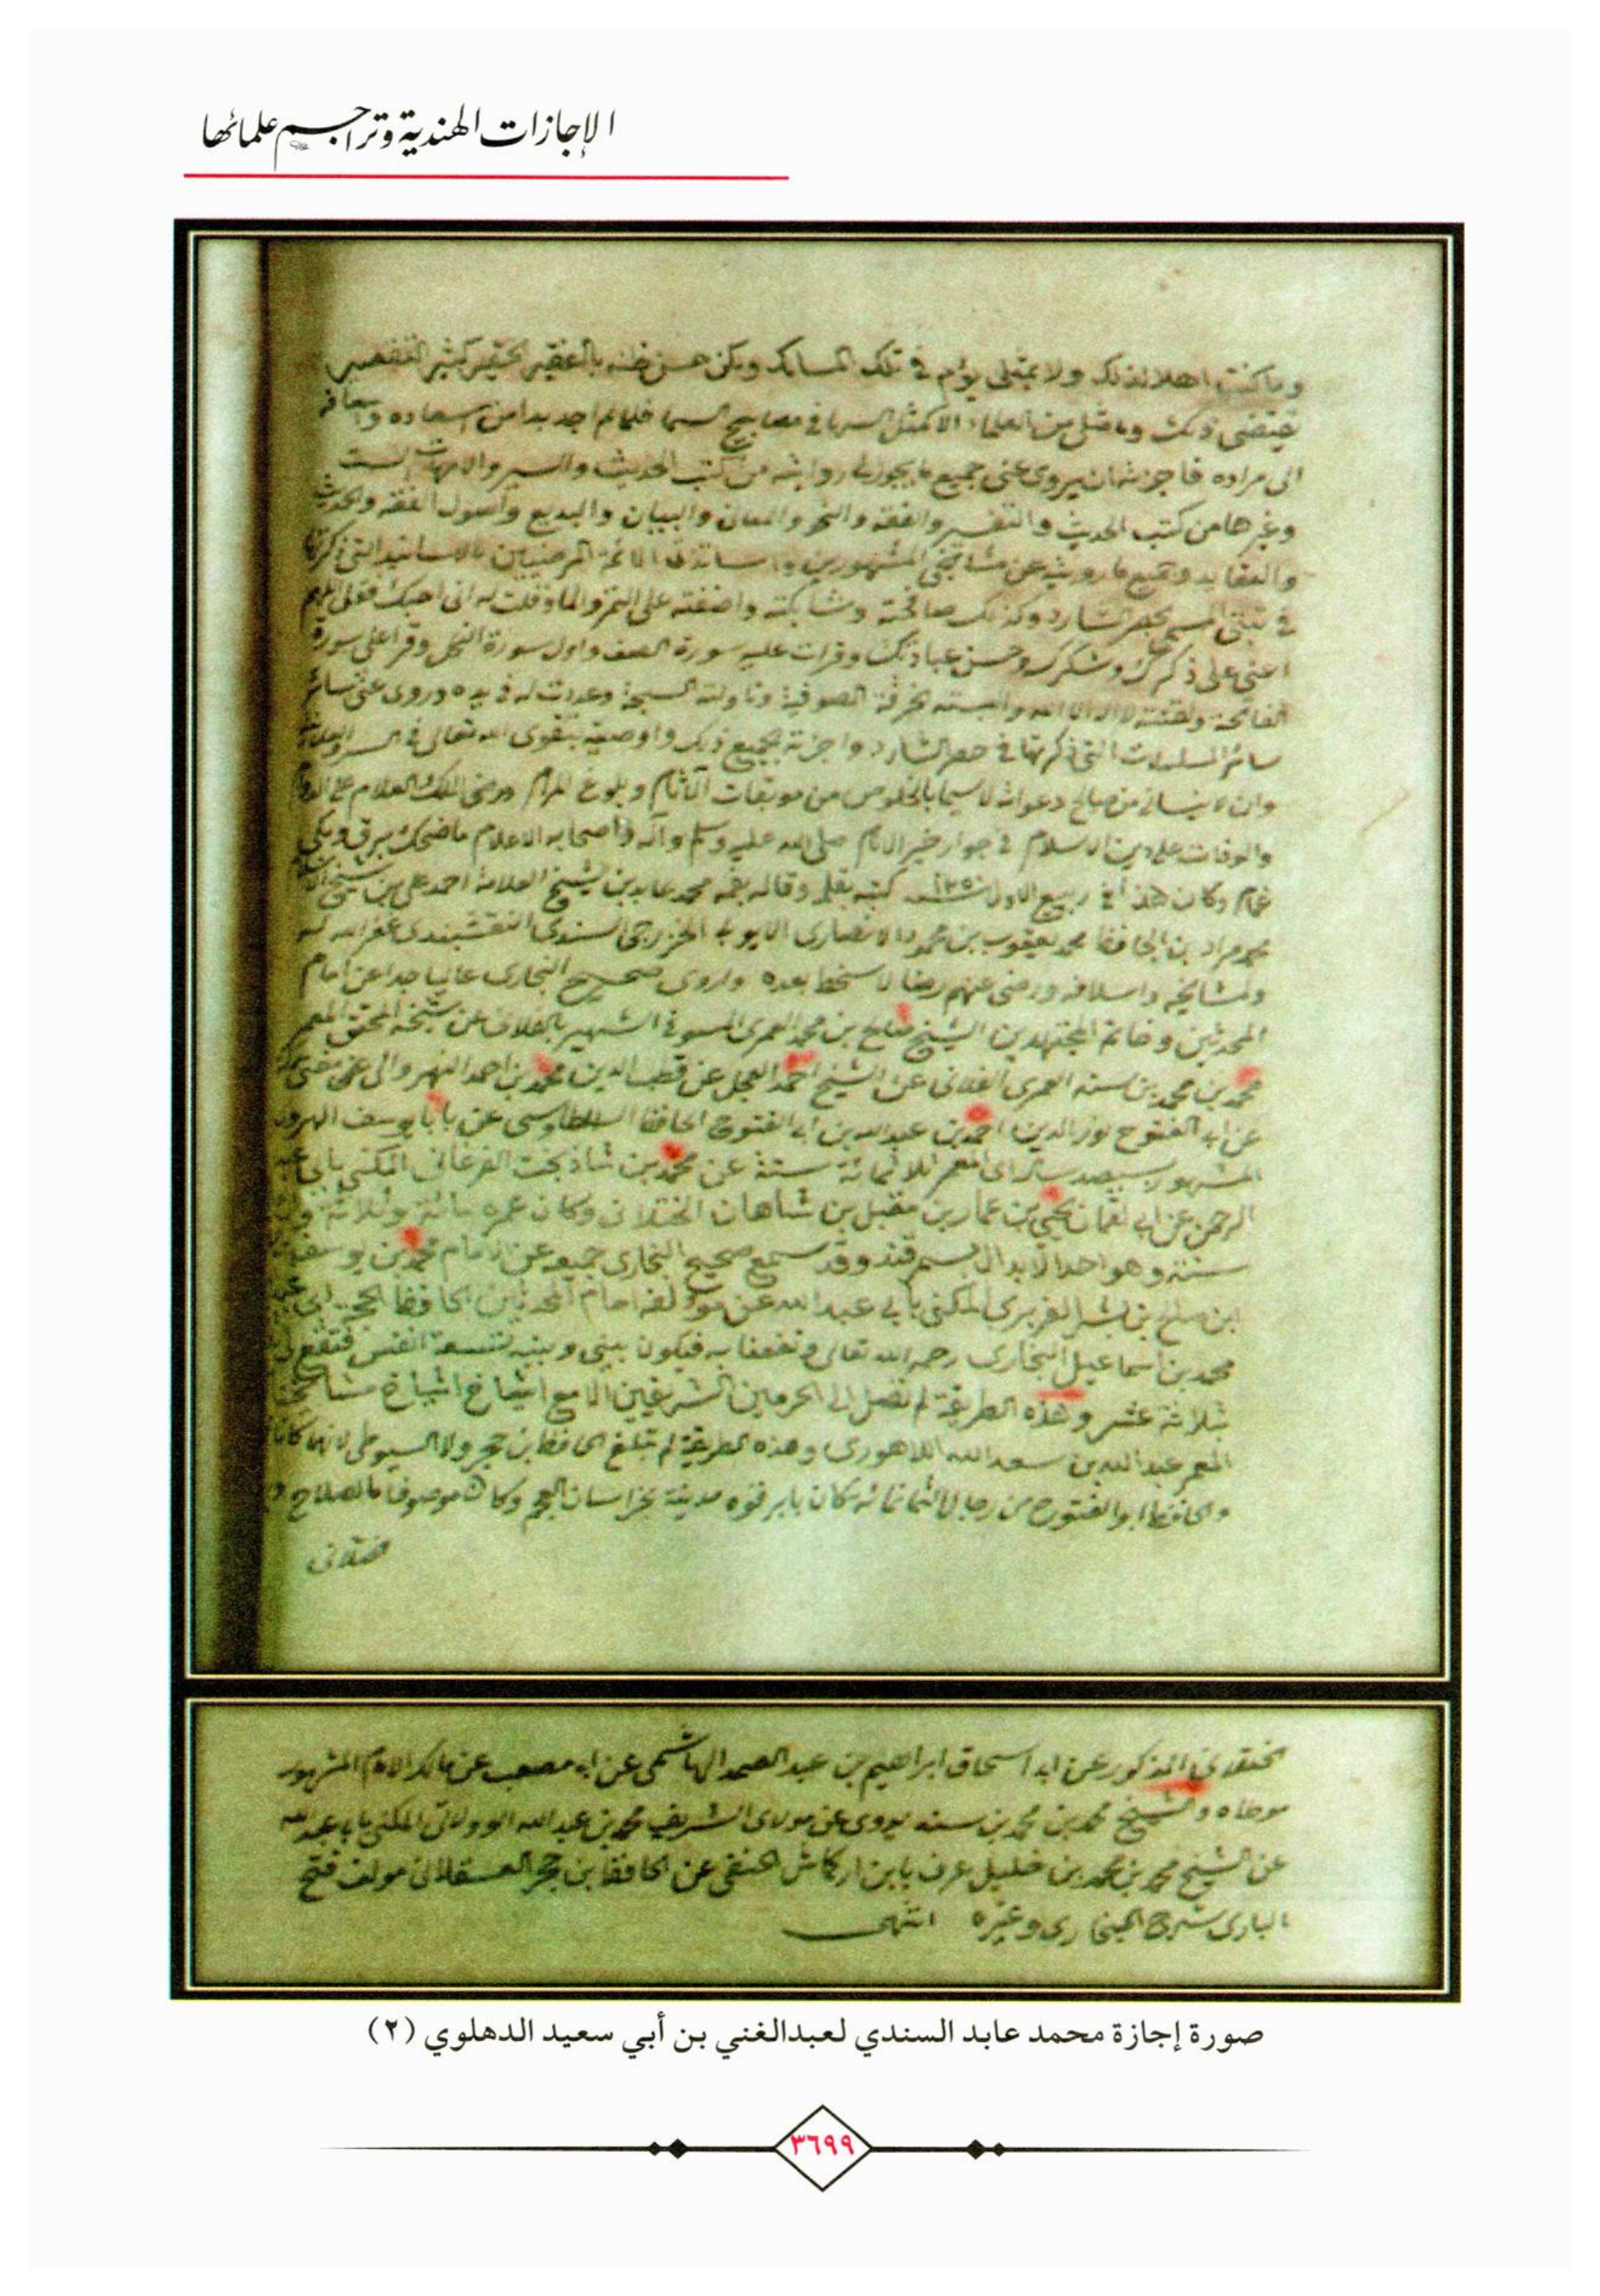 الإجازات الهندية وتراجم علمائها
وما كنت اهلا لذلك ولا بمثلي يؤام في تلك المسالك ولكن حسن ظنه بالفقير الحقير كثير التقصير
يقتضي ذلك وما مثلي من العلماء الا كمثل السها في مصابيح السما فلما لم اجد بدا من اسعاده
الى مراده فاجزته ان يروي عني جميع ما يجوز لي روايته من كتب الحديث والسير والامهات الست
وغيرها من كتب الحديث والتفسير والفقه والنحو والمعان والبيان والبديع واصول الفقه والحديث
والعقايد وجميع ما رويته عن مشائخي المشهورين واساتذتي الائمة المرضيين بالاسانيد التي ذكرتها
في ثبتي المسمى بحصر الشارد وكذلك صافحته وشابكته واضفته على التمر والما وقلت له اني احبك فقل اللهم
اعني على ذكرك وشكرك وحسن عبادتك وقرات عليه سورة الصف واول سورة النحل وقرا علي سورة
الفاتحة ولقنته لا اله الا الله والبسته خرقة الصوفية وناولته السبحة وعددت له في يده وروى عني سائر
سائر المسلسلات التي ذكرتها في حصر الشارد واجزته بجميع ذلك واوصيه بتقوى الله تعالى في السر والعلانية
وان لا ينساني من صالح دعواته لا سيما بالخلوص من موبقات الآثام وبلوغ المرام ورضى الملك العلام
والوفات على دين الاسلام في جوار خير الانام صلى الله عليه وسلم وآله واصحابه الاعلام ما ضحك برق وبكى
غمام وكان هذا في ربيع الاول سنة ١٢٥٠ كتبه بقلمه وقاله بفمه محمد عابد بن الشيخ العلامة احمد علي بن شيخ الاسلام
محمد مراد بن الحافظ محمد يعقوب بن محمود الانصاري الايوبي الخزرجي السندي النقشبندي غفر الله له
ولمشايخه واسلافه ورضي عنهم رضا لا سخط بعده واروي صحيح البخاري عاليا جدا عن امام
المحدثين وخاتم المجتهدين الشيخ صالح بن محمد العمري المسوفي الشهير بالفلاني عن شيخه المحقق المعمر
محمد بن محمد بن سنه العمري الفلاني عن الشيخ احمد العجل عن قطب الدين محمد بن احمد النهروالي
عن ابي الفتوح نور الدين احمد بن عبد الله بن ابي الفتوح الحافظ الطاوسي عن بابا يوسف الهروي
المشهور بسيصد ساله اي المعمر ثلاثمائة سنة عن محمد بن شاذ بخت الفرغاني المكنى بابي عبد
الرحمن عن ابي لقمان يحيى بن عمار بن مقبل بن شاهان الختلاني وكان عمره مائة وثلاثة
سنة وهو احد الابدال بسمرقند وقد سمع صحيح البخاري جميعه عن الامام محمد بن يوسف
ابن صالح بن بشر الفربري المكنى بابي عبد الله عن مؤلفه امام المحدثين الحافظ الحجة ابي عبد
محمد بن اسماعيل البخاري رحمه الله تعالى ونفعنا به فيكون بيني وبينه تسعة انفس فتقع لي
ثلاثة عشر وهذه الطريقة لم تصل الى الحرمين الشريفين الا مع اشياخ
المعمر عبد الله بن سعد الله اللاهوري وهذه الطريقة لم تبلغ الحافظ ابن حجر ولا السيوطي لانهما كانا
والحافظ ابو الفتوح من رجال الثمانمائة كان بابرقوه مدينة بخراسان العجم وكان موصوفا بالصلاح
ختلاني
المذكور عن ابي اسحاق ابراهيم بن عبد الصمد الهاشمي عن ابي مصعب عن مالك الامام المشهور
موطاه والشيخ محمد بن محمد بن سنه يروي عن مولاي الشريف محمد بن عبد الله الوولاتي المكنى بابي عبد الله
عن الشيخ محمد بن محمد بن خليل عرف بابن اركماش الحنفي عن الحافظ ابن حجر العسقلاني مولف فتح
الباري شرح البخاري وغيره انتهى
صورة إجازة محمد عابد السندي لعبدالغني بن أبي سعيد الدهلوي (٢)
٣٦٩٩